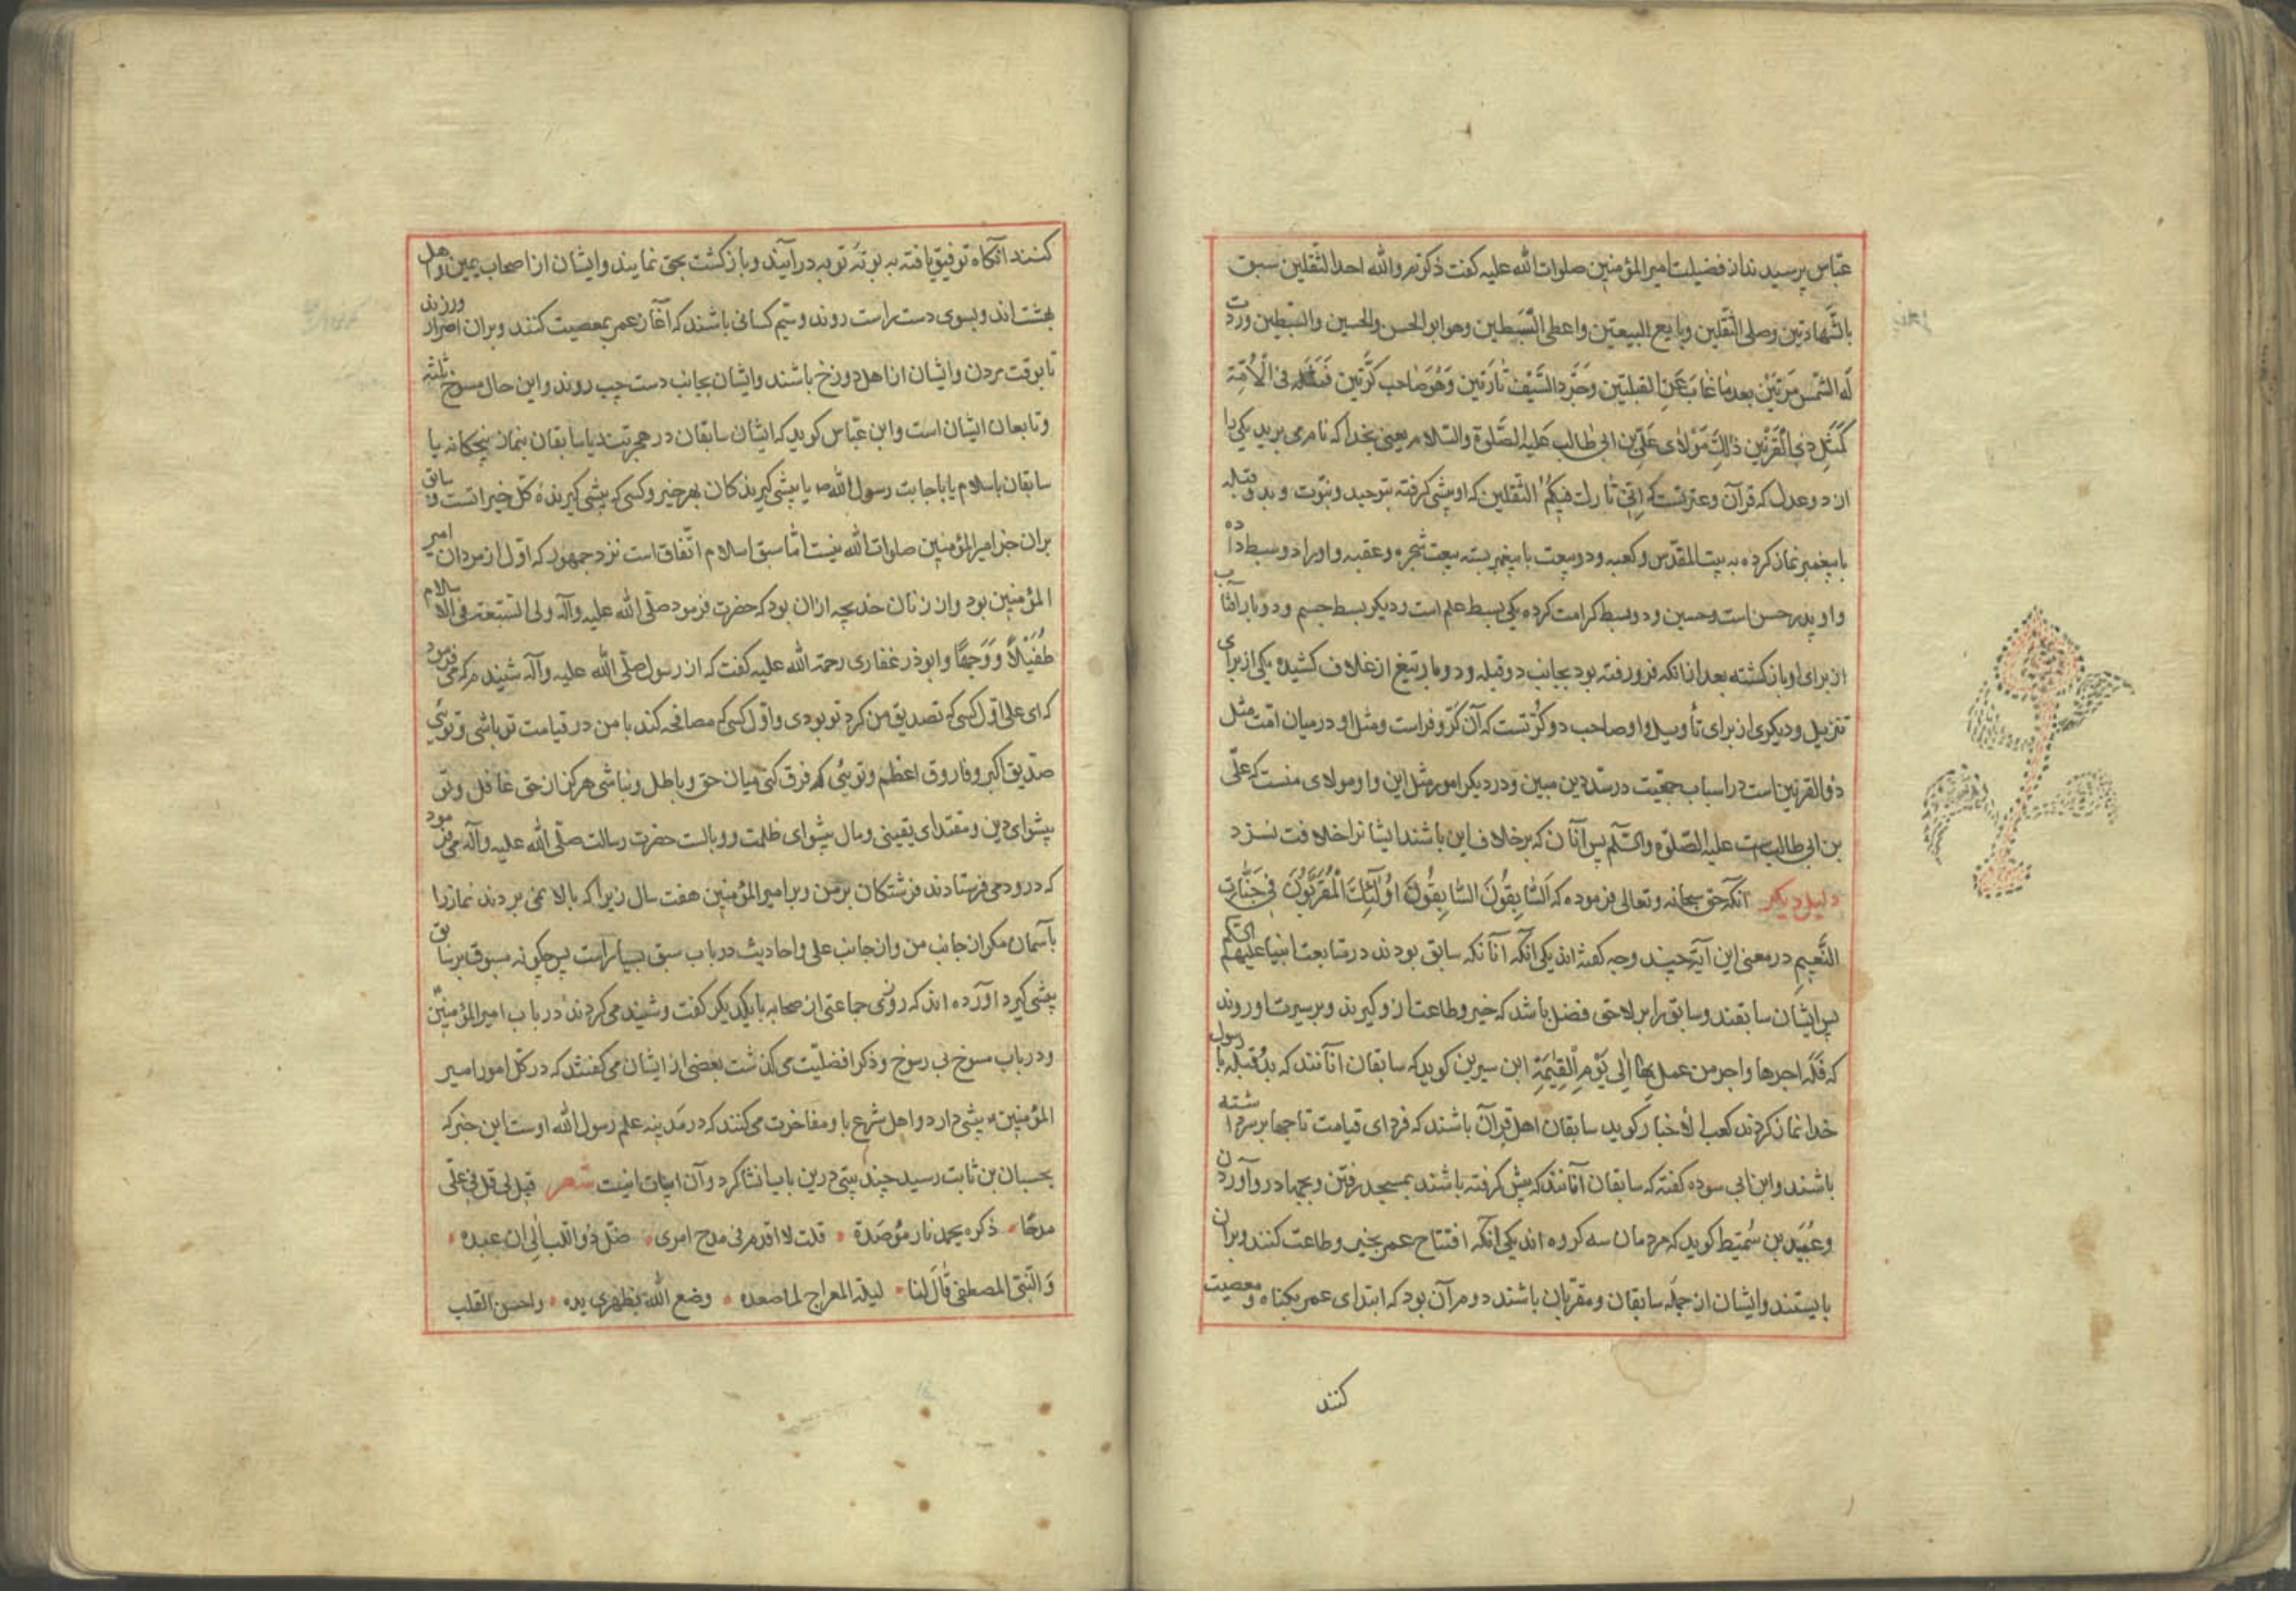 عبّاس پرسیدند از فضیلت امیرالمؤمنین صلوات الله علیه گفت ذکرتم والله احد الثقلین سبق
بالشّهادتین وصلی القبلتین وبایع البیعتین واعطی البسطین وهو ابو الحسن والحسین والسبطین وردّت
لَه الشّمس مَرّتَیْن بعد ما غابَ عَنِ القبلتین وجَرّد السَّیْف تارَتین وَهُوَ صٰاحب کرَّتین فَمَثَله فی الْاُمّة
کَمَثَلِ ذِی القَرْنَیْن ذٰلِكَ مَوْلٰای عَلِیّ بن ابی طٰالب عَلیه الصَّلوة والسّلام یعنی بخدا که نام می برید یکی را
از دو عدل که قرآن و عترتست که اِنّی تٰارك فیکُمُ الثّقلین که او پیشی گرفته بتوحید و نبوّت و بدو قبله
با پیغمبر نماز کرده به بیت المقدّس و کعبه و دو بیعت با پیغمبر بسته بیعت شجره و عقبه و او را دو بسط داده
و او پدر حسن است و حسین و دو بسط کرامت کرده یکی بسط علم است و دیگر بسط جسم و دو بار آفتاب
از برای او باز گشته بعد از انکه فرو رفته بود بجانب دو قبله و دو بار تیغ از غلاف کشیده یکی از برای
تنزیل و دیکری از برای تأویل و او صاحب دو کرّتست که آن کرّ و فرّ است و مثل او در میان امّت مثل
ذو القرنین است در اسباب جمعیّت در سدّ دین مبین و در دیگر امور مثل این و او مولای منست که علیّ
بن ابی طالبست علیه الصّلوة والسّلم پس آنان که بر خلاف این باشند ایشانرا خلافت نسزد
دلیل دیکر آنکه حق سبحانه و تعالی فرموده که اَلسّٰابِقُونَ السّٰابِقُونَ اُولٰئِكَ الْمُقَرَّبُونَ فی جَنّٰاتِ
النَّعِیمِ در معنی این آیة چند وجه گفته اند یکی آنکه آنانکه سابق بودند در متابعت انبیا علیهم السّلم
پس ایشان سابقند و سابق را بر لاحق فضل باشد که خیر و طاعت از و گیرند و بر سیرت او روند
که فَلَه اجرها و اجر من عمل بِهٰا اِلٰی یَوْمِ الْقِیٰمَةِ ابن سیرین گوید که سابقان آنانند که بدو قبله با رسول
خدا نماز کردند کعب الأخبار گوید سابقان اهل قرآن باشند که فردای قیامت تاجها بر سر داشته
باشند و ابن ابی سوده گفته که سابقان آنانند که پیش گرفته باشند بمسجد رفتن و بجهاد رو آوردن
و عُبَید بن سُمَیط گوید که مردمان سه گروه اند یکی آنکه افتتاح عمر بخیر و طاعت کنند و بران
بایستند و ایشان از جمله سابقان و مقرّبان باشند دوم آن بود که ابتدای عمر بگناه و معصیت
کنند
کنند آنگاه توفیق یافته به بوتهٔ توبه درآیند و بازگشت بحق نمایند و ایشان از اصحاب یمین و اهل
بهشت اند و بسوی دست راست روند و سیّم کسانی باشند که آغاز عمر بمعصیت کنند و بران اصرار ورزند
تا بوقت مردن و ایشان از اهل دوزخ باشند و ایشان بجانب دست چپ روند و این حال مسوخ ثلثه
و تابعان ایشان است و ابن عبّاس گوید که ایشان سابقان در هجرتند یا سابقان بنماز پنجگانه یا
سابقان باسلام یا باجابت رسول الله ص یا پیشی گیرندگان بهر خیر و کسی که پیشی گیرندهٔ کلّ خیراتست و سابق
بران جز امیرالمؤمنین صلوات الله نیست امّا سبق اسلام اتّفاق است نزد جمهور که اوّل از مردان امیر
المؤمنین بود و از زنان خدیجه ازان بود که حضرت فرمود صلّی الله علیه وآله ولی السّبقة فی الاسلام
طُفَیْلاً وَوَجهًا و ابوذر غفاری رحمة الله علیه گفت که از رسول صلّی الله علیه وآله شنیدم که می فرمود
که ای علی اوّل کسی که تصدیق من کرد تو بودی و اوّل کسی که مصافحه کند با من در قیامت تو باشی و توئی
صدّیق اکبر و فاروق اعظم و توئی که فرق کنی میان حق و باطل و نباشی هرگز از حق غافل و تو
پیشوای دین و مقتدای یقینی و مال پیشوای ظلمت و وبالست حضرت رسالت صلّی الله علیه وآله می فرمود
که درود می فرستادند فرشتگان بر من و بر امیرالمؤمنین هفت سال زیرا که بالا نمی بردند نماز را
بآسمان مگر از جانب من و از جانب علی و احادیث در باب سبق بسیار است پس چگونه مسبوق بر سابق
پیشی گیرد آورده اند که روزی جماعتی از صحابه با یکدیگر گفت و شنید می کردند در باب امیرالمؤمنین
و در باب مسوخ بی رسوخ و ذکر افضلیّت می گذشت بعضی از ایشان می گفتند که در کلّ امور امیر
المؤمنین پیشی دارد و اهل شرع با و مفاخرت می کنند که در مدینه علم رسول الله اوست این خبر که
بحسان بن ثابت رسید چند بیتی درین باب انشا کرد و آن ابیات اینست شعر قیل لی قل فی علیّ
مدحًا ذکره یخمد نار مؤصَدة قلت لا اقدم فی مدح امری ضلّ ذو اللّب الی ان عبده
وَالنّبی المصطفی قٰالَ لَنا لیلة المعراج لما صعده وضع الله بظهری یده واحسّ القلب